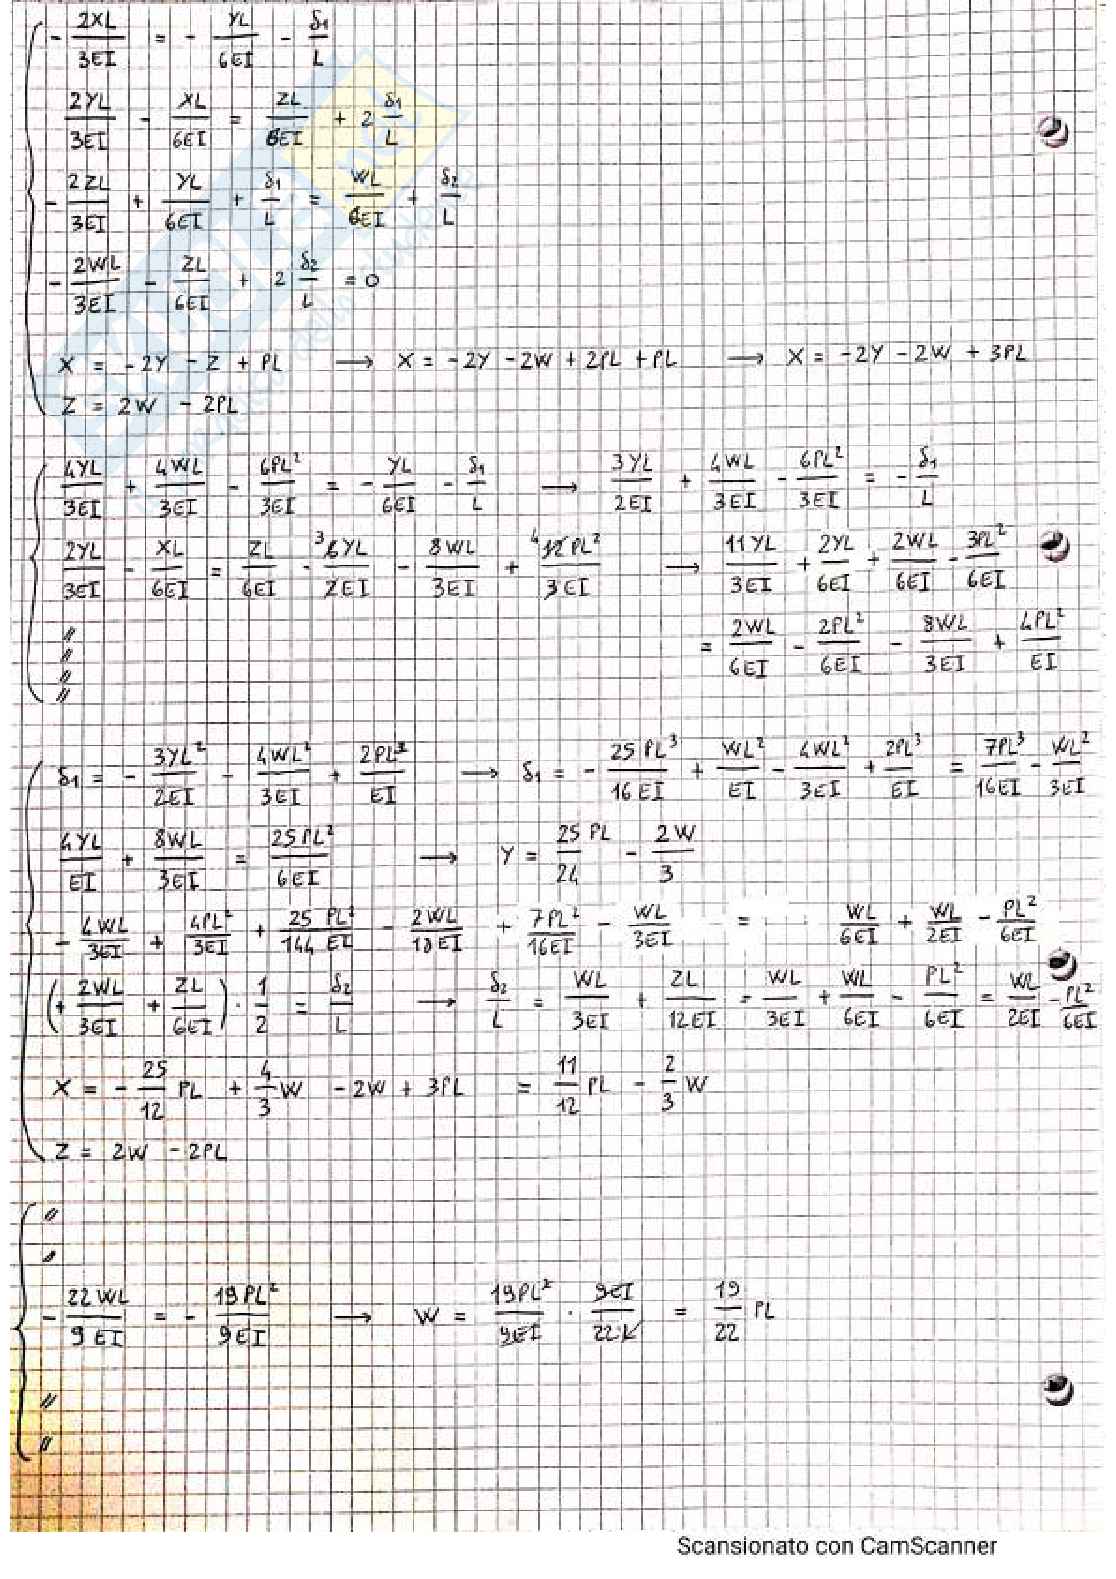 - 2XL/3EI = - YL/6EI - δ1/L
2YL/3EI - XL/6EI = ZL/6EI + 2 δ1/L
- 2ZL/3EI + YL/6EI + δ1/L = WL/6EI + δ2/L
- 2WL/3EI - ZL/6EI + 2 δ2/L = 0
X = -2Y - Z + PL → X = -2Y - 2W + 2PL + PL → X = -2Y - 2W + 3PL
Z = 2W - 2PL
4YL/3EI + 4WL/3EI - 6PL²/3EI = - YL/6EI - δ1/L → 3YL/2EI + 4WL/3EI - 6PL²/3EI = - δ1/L
2YL/3EI - XL/6EI = ZL/6EI - 3 6YL/2EI - 8WL/3EI + 4 12PL²/3EI → 11YL/3EI + 2YL/6EI + 2WL/6EI - 3PL²/6EI
= 2WL/6EI - 2PL²/6EI - 8WL/3EI + 4PL²/EI
//
//
//
//
δ1 = - 3YL²/2EI - 4WL²/3EI + 2PL³/EI → δ1 = - 25PL³/16EI + WL²/EI - 4WL²/3EI + 2PL³/EI = 7PL³/16EI - WL²/3EI
4YL/EI + 8WL/3EI = 25PL²/6EI → Y = 25/24 PL - 2W/3
- 4WL/3EI + 4PL²/3EI + 25PL²/144EI - 2WL/18EI + 7PL²/16EI - WL/3EI = WL/6EI + WL/2EI - PL²/6EI
(+ 2WL/3EI + ZL/6EI) · 1/2 = δ2/L → δ2/L = WL/3EI + ZL/12EI = WL/3EI + WL/6EI - PL²/6EI = WL/2EI - PL²/6EI
X = - 25/12 PL + 4/3 W - 2W + 3PL = 11/12 PL - 2/3 W
Z = 2W - 2PL
//
//
- 22WL/9EI = - 19PL²/9EI → W = 19PL²/9EI · 9EI/22L = 19/22 PL
//
//
Scansionato con CamScanner